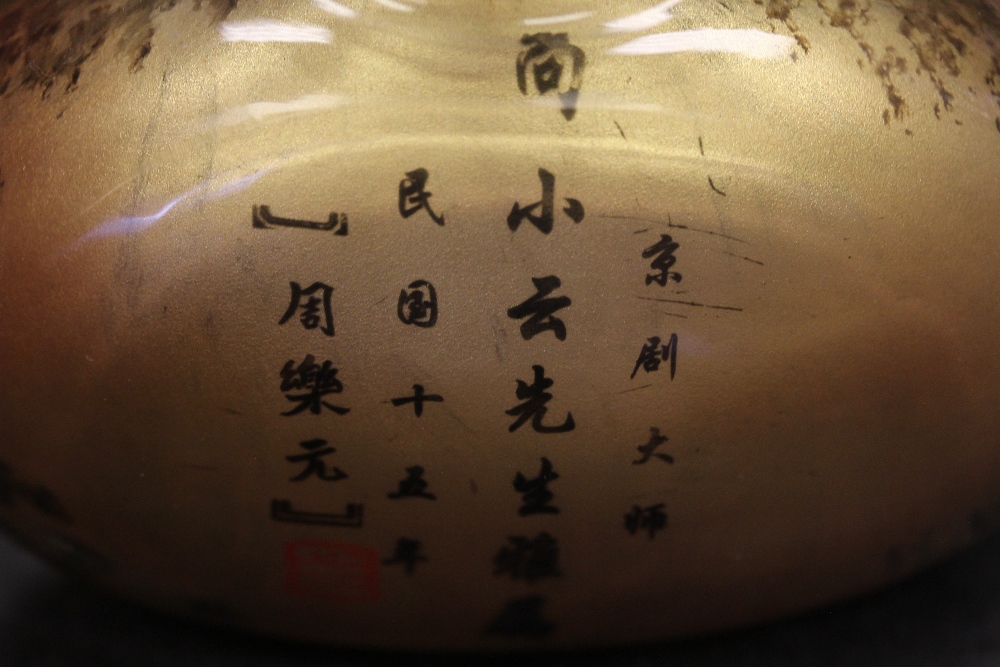 京剧大师
尚小云先生雅正
民国十五年
【周樂元】